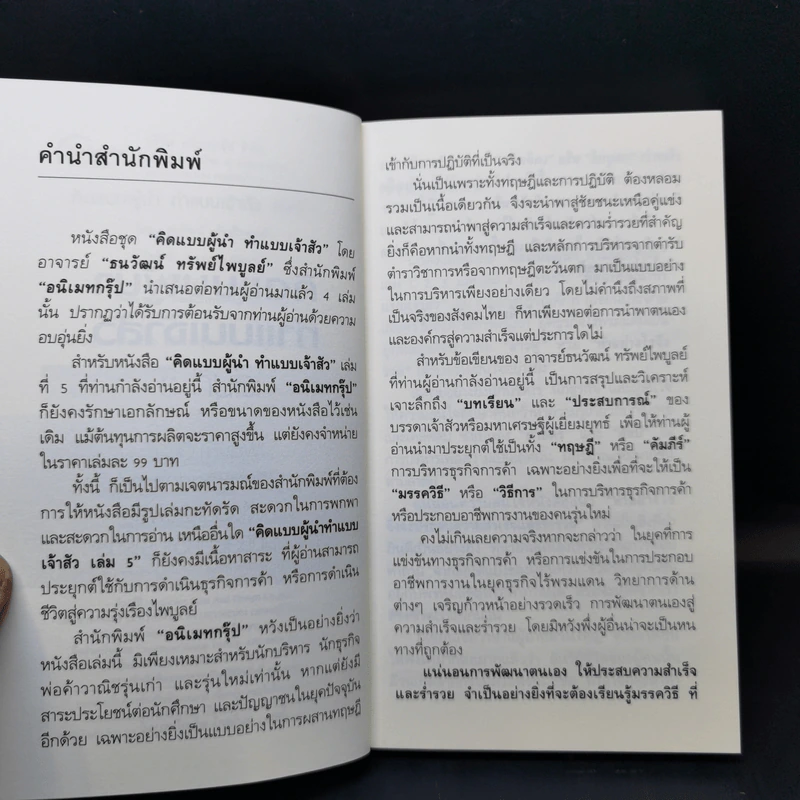 คำนำสำนักพิมพ์
หนังสือชุด “คิดแบบผู้นำ ทำแบบเจ้าสัว” โดย
อาจารย์ “ธนวัฒน์ ทรัพย์ไพบูลย์” ซึ่งสำนักพิมพ์
“อนิเมทกรุ๊ป” นำเสนอต่อท่านผู้อ่านมาแล้ว 4 เล่ม
นั้น ปรากฏว่าได้รับการต้อนรับจากท่านผู้อ่านด้วยความ
อบอุ่นยิ่ง
สำหรับหนังสือ “คิดแบบผู้นำ ทำแบบเจ้าสัว” เล่ม
ที่ 5 ที่ท่านกำลังอ่านอยู่นี้ สำนักพิมพ์ “อนิเมทกรุ๊ป”
ก็ยังคงรักษาเอกลักษณ์ หรือขนาดของหนังสือไว้เช่น
เดิม แม้ต้นทุนการผลิตจะราคาสูงขึ้น แต่ยังคงจำหน่าย
ในราคาเล่มละ 99 บาท
ทั้งนี้ ก็เป็นไปตามเจตนารมณ์ของสำนักพิมพ์ที่ต้อง
การให้หนังสือมีรูปเล่มกะทัดรัด สะดวกในการพกพา
และสะดวกในการอ่าน เหนืออื่นใด “คิดแบบผู้นำทำแบบ
เจ้าสัว เล่ม 5” ก็ยังคงมีเนื้อหาสาระ ที่ผู้อ่านสามารถ
ประยุกต์ใช้กับการดำเนินธุรกิจการค้า หรือการดำเนิน
ชีวิตสู่ความรุ่งเรืองไพบูลย์
สำนักพิมพ์ “อนิเมทกรุ๊ป” หวังเป็นอย่างยิ่งว่า
หนังสือเล่มนี้ มิเพียงเหมาะสำหรับนักบริหาร นักธุรกิจ
พ่อค้าวาณิชรุ่นเก่า และรุ่นใหม่เท่านั้น หากแต่ยังมี
สาระประโยชน์ต่อนักศึกษา และปัญญาชนในยุคปัจจุบัน
อีกด้วย เฉพาะอย่างยิ่งเป็นแบบอย่างในการผสานทฤษฎี
เข้ากับการปฏิบัติที่เป็นจริง
นั่นเป็นเพราะทั้งทฤษฎีและการปฏิบัติ ต้องหลอม
รวมเป็นเนื้อเดียวกัน จึงจะนำพาสู่ชัยชนะเหนือคู่แข่ง
และสามารถนำพาสู่ความสำเร็จและความร่ำรวยที่สำคัญ
ยิ่งก็คือหากนำทั้งทฤษฎี และหลักการบริหารจากตำรับ
ตำราวิชาการหรือจากทฤษฎีตะวันตก มาเป็นแบบอย่าง
ในการบริหารเพียงอย่างเดียว โดยไม่คำนึงถึงสภาพที่
เป็นจริงของสังคมไทย ก็หาเพียงพอต่อการนำพาตนเอง
และองค์กรสู่ความสำเร็จแต่ประการใดไม่
สำหรับข้อเขียนของ อาจารย์ธนวัฒน์ ทรัพย์ไพบูลย์
ที่ท่านผู้อ่านกำลังอ่านอยู่นี้ เป็นการสรุปและวิเคราะห์
เจาะลึกถึง “บทเรียน” และ “ประสบการณ์” ของ
บรรดาเจ้าสัวหรือมหาเศรษฐีผู้เยี่ยมยุทธ์ เพื่อให้ท่านผู้
อ่านนำมาประยุกต์ใช้เป็นทั้ง “ทฤษฎี” หรือ “คัมภีร์”
การบริหารธุรกิจการค้า เฉพาะอย่างยิ่งเพื่อที่จะให้เป็น
“มรรควิธี” หรือ “วิธีการ” ในการบริหารธุรกิจการค้า
หรือประกอบอาชีพการงานของคนรุ่นใหม่
คงไม่เกินเลยความจริงหากจะกล่าวว่า ในยุคที่การ
แข่งขันทางธุรกิจการค้า หรือการแข่งขันในการประกอบ
อาชีพการงานในยุคธุรกิจไร้พรมแดน วิทยาการด้าน
ต่างๆ เจริญก้าวหน้าอย่างรวดเร็ว การพัฒนาตนเองสู่
ความสำเร็จและร่ำรวย โดยมิหวังพึ่งผู้อื่นน่าจะเป็นหน
ทางที่ถูกต้อง
แน่นอนการพัฒนาตนเอง ให้ประสบความสำเร็จ
และร่ำรวย จำเป็นอย่างยิ่งที่จะต้องเรียนรู้มรรควิธี ที่